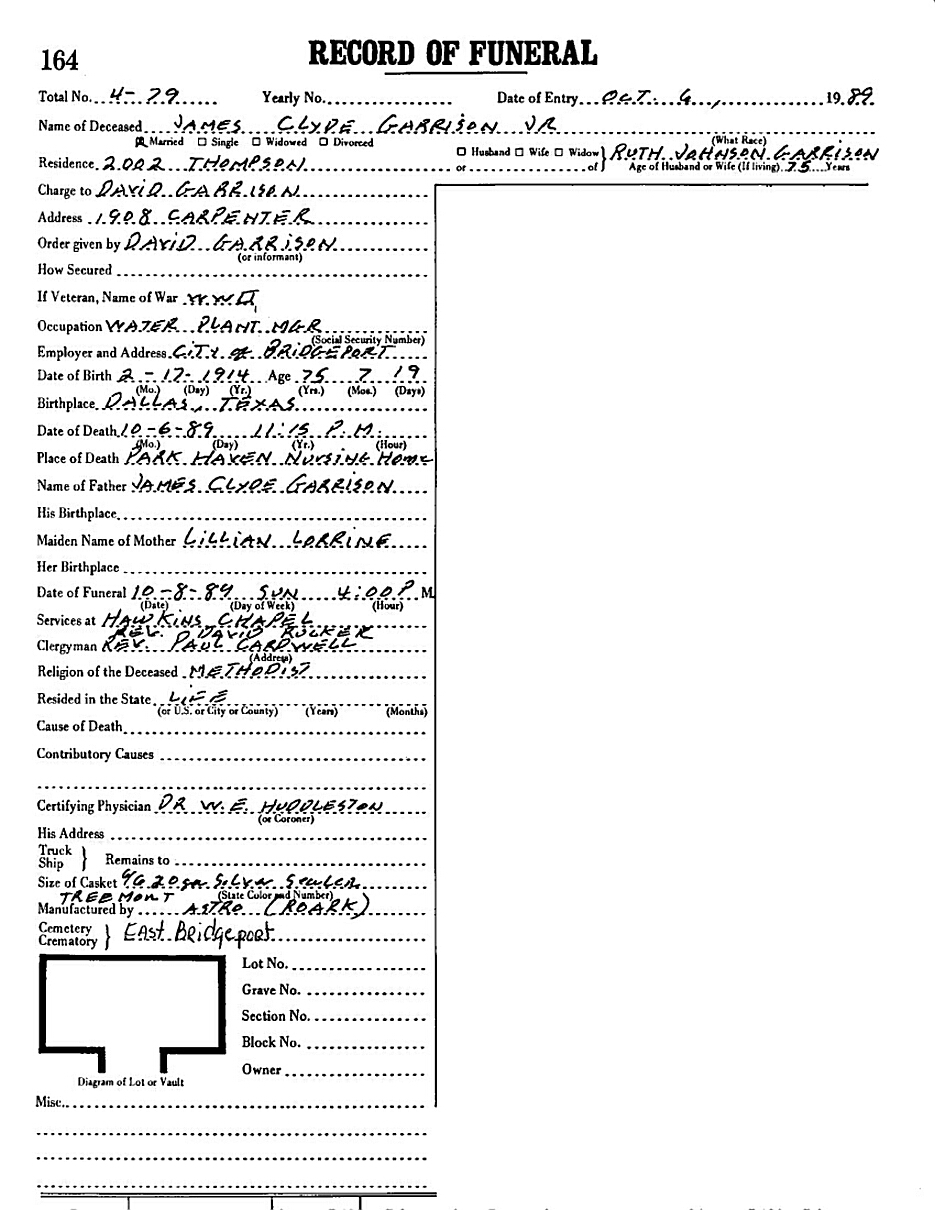 164
RECORD OF FUNERAL
Total No. 4-79 Yearly No. Date of Entry OCT. 6, 1989
Name of Deceased JAMES CLYDE GARRISON JR
☒ Married ☐ Single ☐ Widowed ☐ Divorced (What Race)
Residence 2002 THOMPSON ☐ Husband ☐ Wife ☐ Widow } RUTH JOHNSON GARRISON
or of } Age of Husband or Wife (If living) 75 Years
Charge to DAVID GARRISON
Address 1908 CARPENTER
Order given by DAVID GARRISON
(or informant)
How Secured
If Veteran, Name of War W.W.II
Occupation WATER PLANT MGR
(Social Security Number)
Employer and Address CITY of BRIDGEPORT
Date of Birth 2-17-1914 Age 75 7 19
(Mo.) (Day) (Yr.) (Yrs.) (Mos.) (Days)
Birthplace DALLAS, TEXAS
Date of Death 10-6-89 11:15 P.M.
(Mo.) (Day) (Yr.) (Hour)
Place of Death PARK HAVEN NURSING HOME
Name of Father JAMES CLYDE GARRISON
His Birthplace
Maiden Name of Mother LILLIAN LORRINE
Her Birthplace
Date of Funeral 10-8-89 SUN 4:00 P.M
(Date) (Day of Week) (Hour)
Services at HAWKINS CHAPEL
REV. DAVID RUCKER
Clergyman REV. PAUL CARDWELL
(Address)
Religion of the Deceased METHODIST
Resided in the State LIFE
(or U.S. or City or County) (Years) (Months)
Cause of Death
Contributory Causes
Certifying Physician DR W.E. HUDDLESTON
(or Coroner)
His Address
Truck
Ship } Remains to
Size of Casket 20 ga Silver Sealer
TREEMONT (State Color and Number)
Manufactured by ASTRO (ROARK)
Cemetery
Crematory } EAST BRidgeport
Lot No.
Grave No.
Section No.
Block No.
Owner
Diagram of Lot or Vault
Misc.